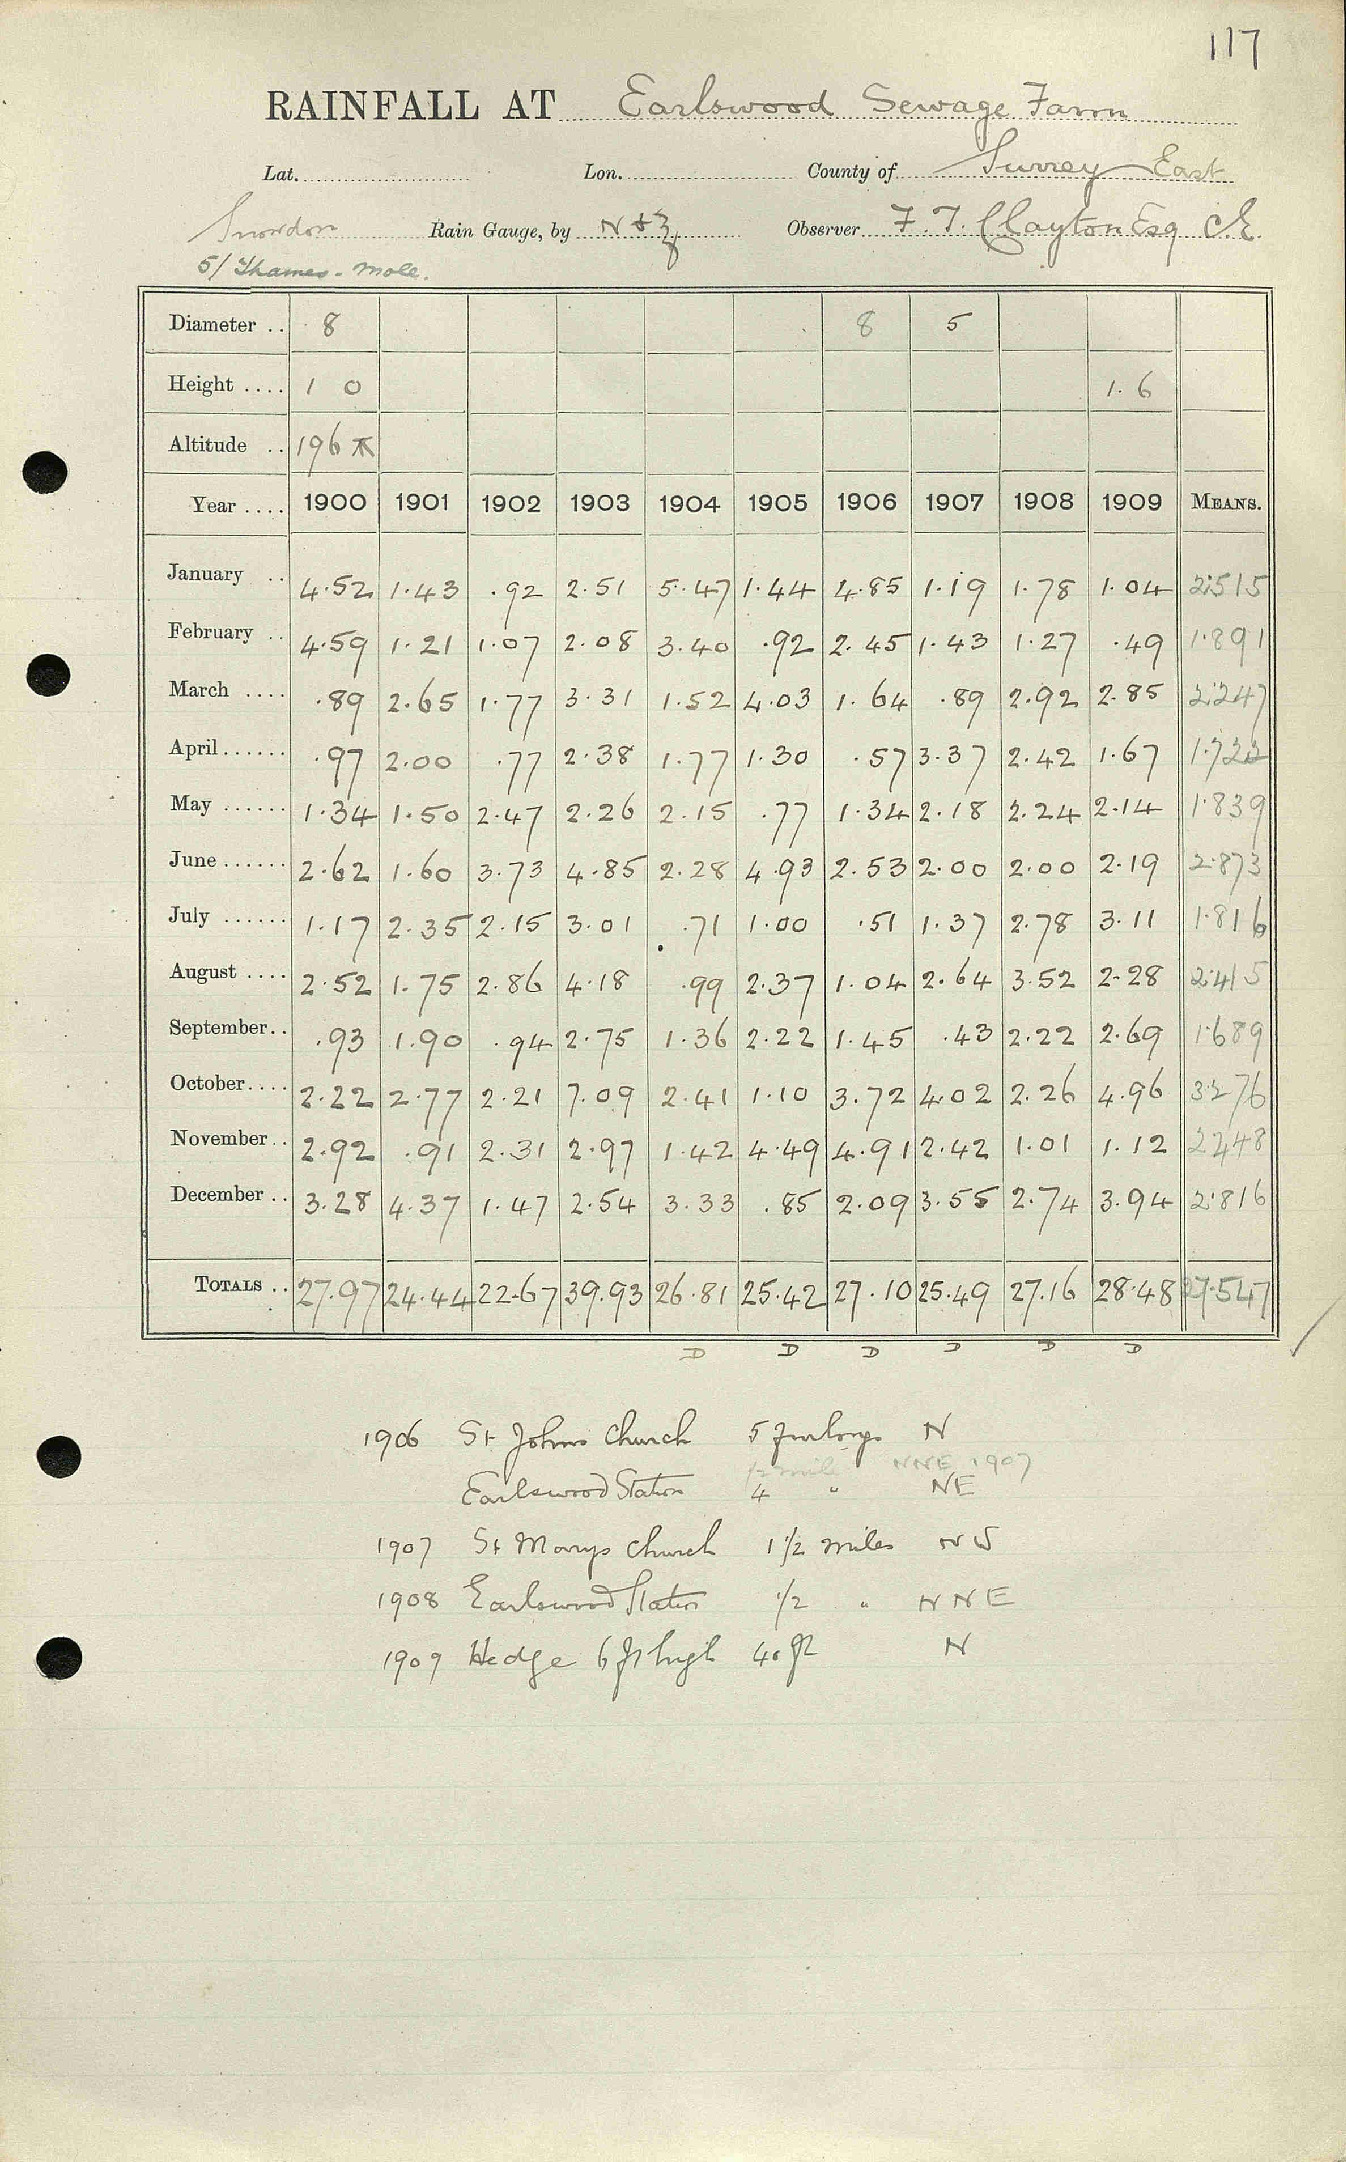 117
RAINFALL AT Earlswood Sewage Farm
Lat. Lon. County of Surrey East
Snowdon Rain Gauge, by N & Z Observer F. T. Clayton Esq C.E.
5/ Thames - Mole.
Diameter .. 8 8 5
Height .... 1 0 1. 6
Altitude .. 196
Year .... 1900 1901 1902 1903 1904 1905 1906 1907 1908 1909 MEANS.
January .. 4.52 1.43 .92 2.51 5.47 1.44 4.85 1.19 1.78 1.04 2.515
February .. 4.59 1.21 1.07 2.08 3.40 .92 2.45 1.43 1.27 .49 1.891
March .... .89 2.65 1.77 3.31 1.52 4.03 1.64 .89 2.92 2.85 2.247
April...... .97 2.00 .77 2.38 1.77 1.30 .57 3.37 2.42 1.67 1.722
May ...... 1.34 1.50 2.47 2.26 2.15 .77 1.34 2.18 2.24 2.14 1.839
June ...... 2.62 1.60 3.73 4.85 2.28 4.93 2.53 2.00 2.00 2.19 2.873
July ...... 1.17 2.35 2.15 3.01 .71 1.00 .51 1.37 2.78 3.11 1.816
August .... 2.52 1.75 2.86 4.18 .99 2.37 1.04 2.64 3.52 2.28 2.415
September.. .93 1.90 .94 2.75 1.36 2.22 1.45 .43 2.22 2.69 1.689
October.... 2.22 2.77 2.21 7.09 2.41 1.10 3.72 4.02 2.26 4.96 3.276
November.. 2.92 .91 2.31 2.97 1.42 4.49 4.91 2.42 1.01 1.12 2.448
December .. 3.28 4.37 1.47 2.54 3.33 .85 2.09 3.55 2.74 3.94 2.816
TOTALS .. 27.97 24.44 22.67 39.93 26.81 25.42 27.10 25.49 27.16 28.48 27.547
D D D D D D
1906 St Johns Church 5 furlongs N
1/2 mile NNE 1907
Earlswood Station 4 " NE
1907 St Marys Church 1 1/2 miles NW
1908 Earlswood Station 1/2 " NNE
1909 Hedge 6 ft high 40 ft N